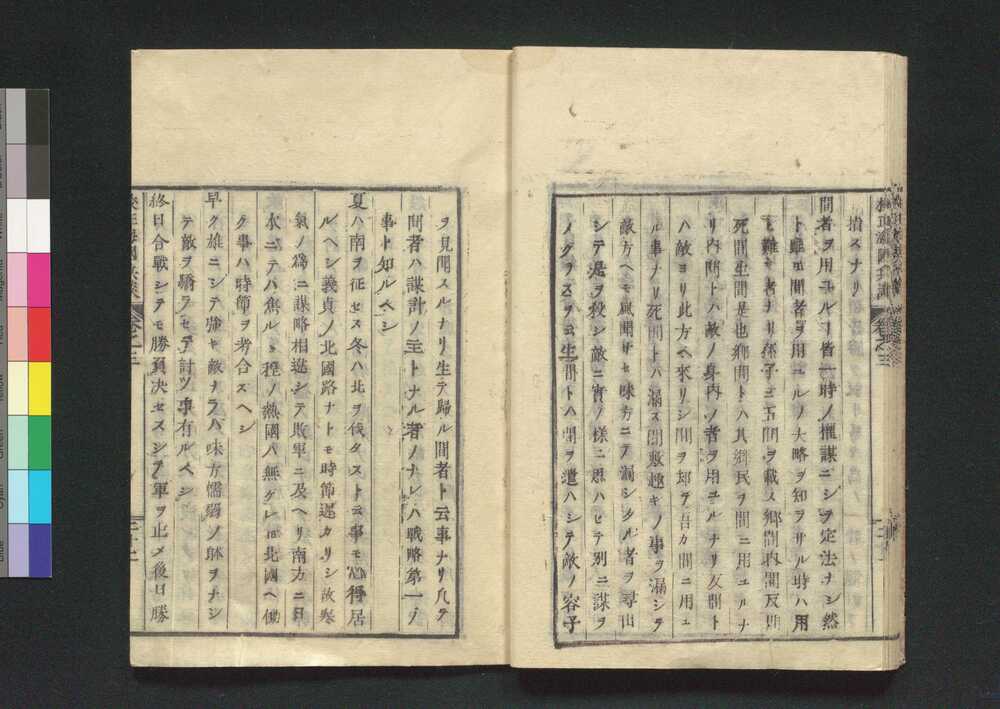 損スナリ
間者ヲ用ユルヿ皆一時ノ權謀ニシテ定法ナシ然
ト雖𪜈間者ヲ用ユルノ大略ヲ知ラサル時ハ用
ヒ難キ者ナリ孫子ニ五間ヲ載ス郷間内間反間
死間生間是也郷間トハ其郷民ヲ間ニ用ユルナ
リ内間トハ敵ノ身内ノ者ヲ用ユルナリ反間ト
ハ敵ヨリ此方ヘ來リシ間ヲ却テ吾カ間ニ用ユ
ル事ナリ死間トハ漏ス間敷趣キノ事ヲ漏シテ
敵方ヘモ風聞サセ味方ニテ漏シタル者ヲ尋出
シテ是ヲ殺シ敵ニ實ノ様ニ思ハセテ別ニ謀ヲ
メグラスヲ云生間トハ間ヲ遣ハシテ敵ノ容子
ヲ見聞スルナリ生テ歸ル間者ト云事ナリ凡テ
間者ハ謀計ノ主トナル者ノナレハ戰略第一ノ
事ト知ルヘシ
夏ハ南ヲ征セス冬ハ北ヲ伐タスト云事モ心得居
ルヘシ義貞ノ北國路ナトモ時節遲カリシ故寒
氣ノ爲ニ謀略相違シテ敗軍ニ及ヘリ南方ニ日
本ニテハ焦ルヽ程ノ熱國ハ無グレ𪜈北國ヘ働
ク事ハ時節ヲ考合スヘシ
早ク雄ニシテ強キ敵ナラバ味方懦弱ノ躰ヲナシ
テ敵ヲ驕ラセテ討ツ事有ルヘシ
終日合戰シテモ勝負決セスシテ軍ヲ止メ後日勝